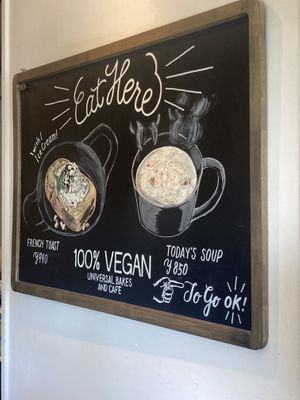 Eat Here
with!
Ice Cream!
FRENCH TOAST
¥940
TODAY'S SOUP
¥850
100% VEGAN
UNIVERSAL BAKES
AND CAFE
To Go OK!